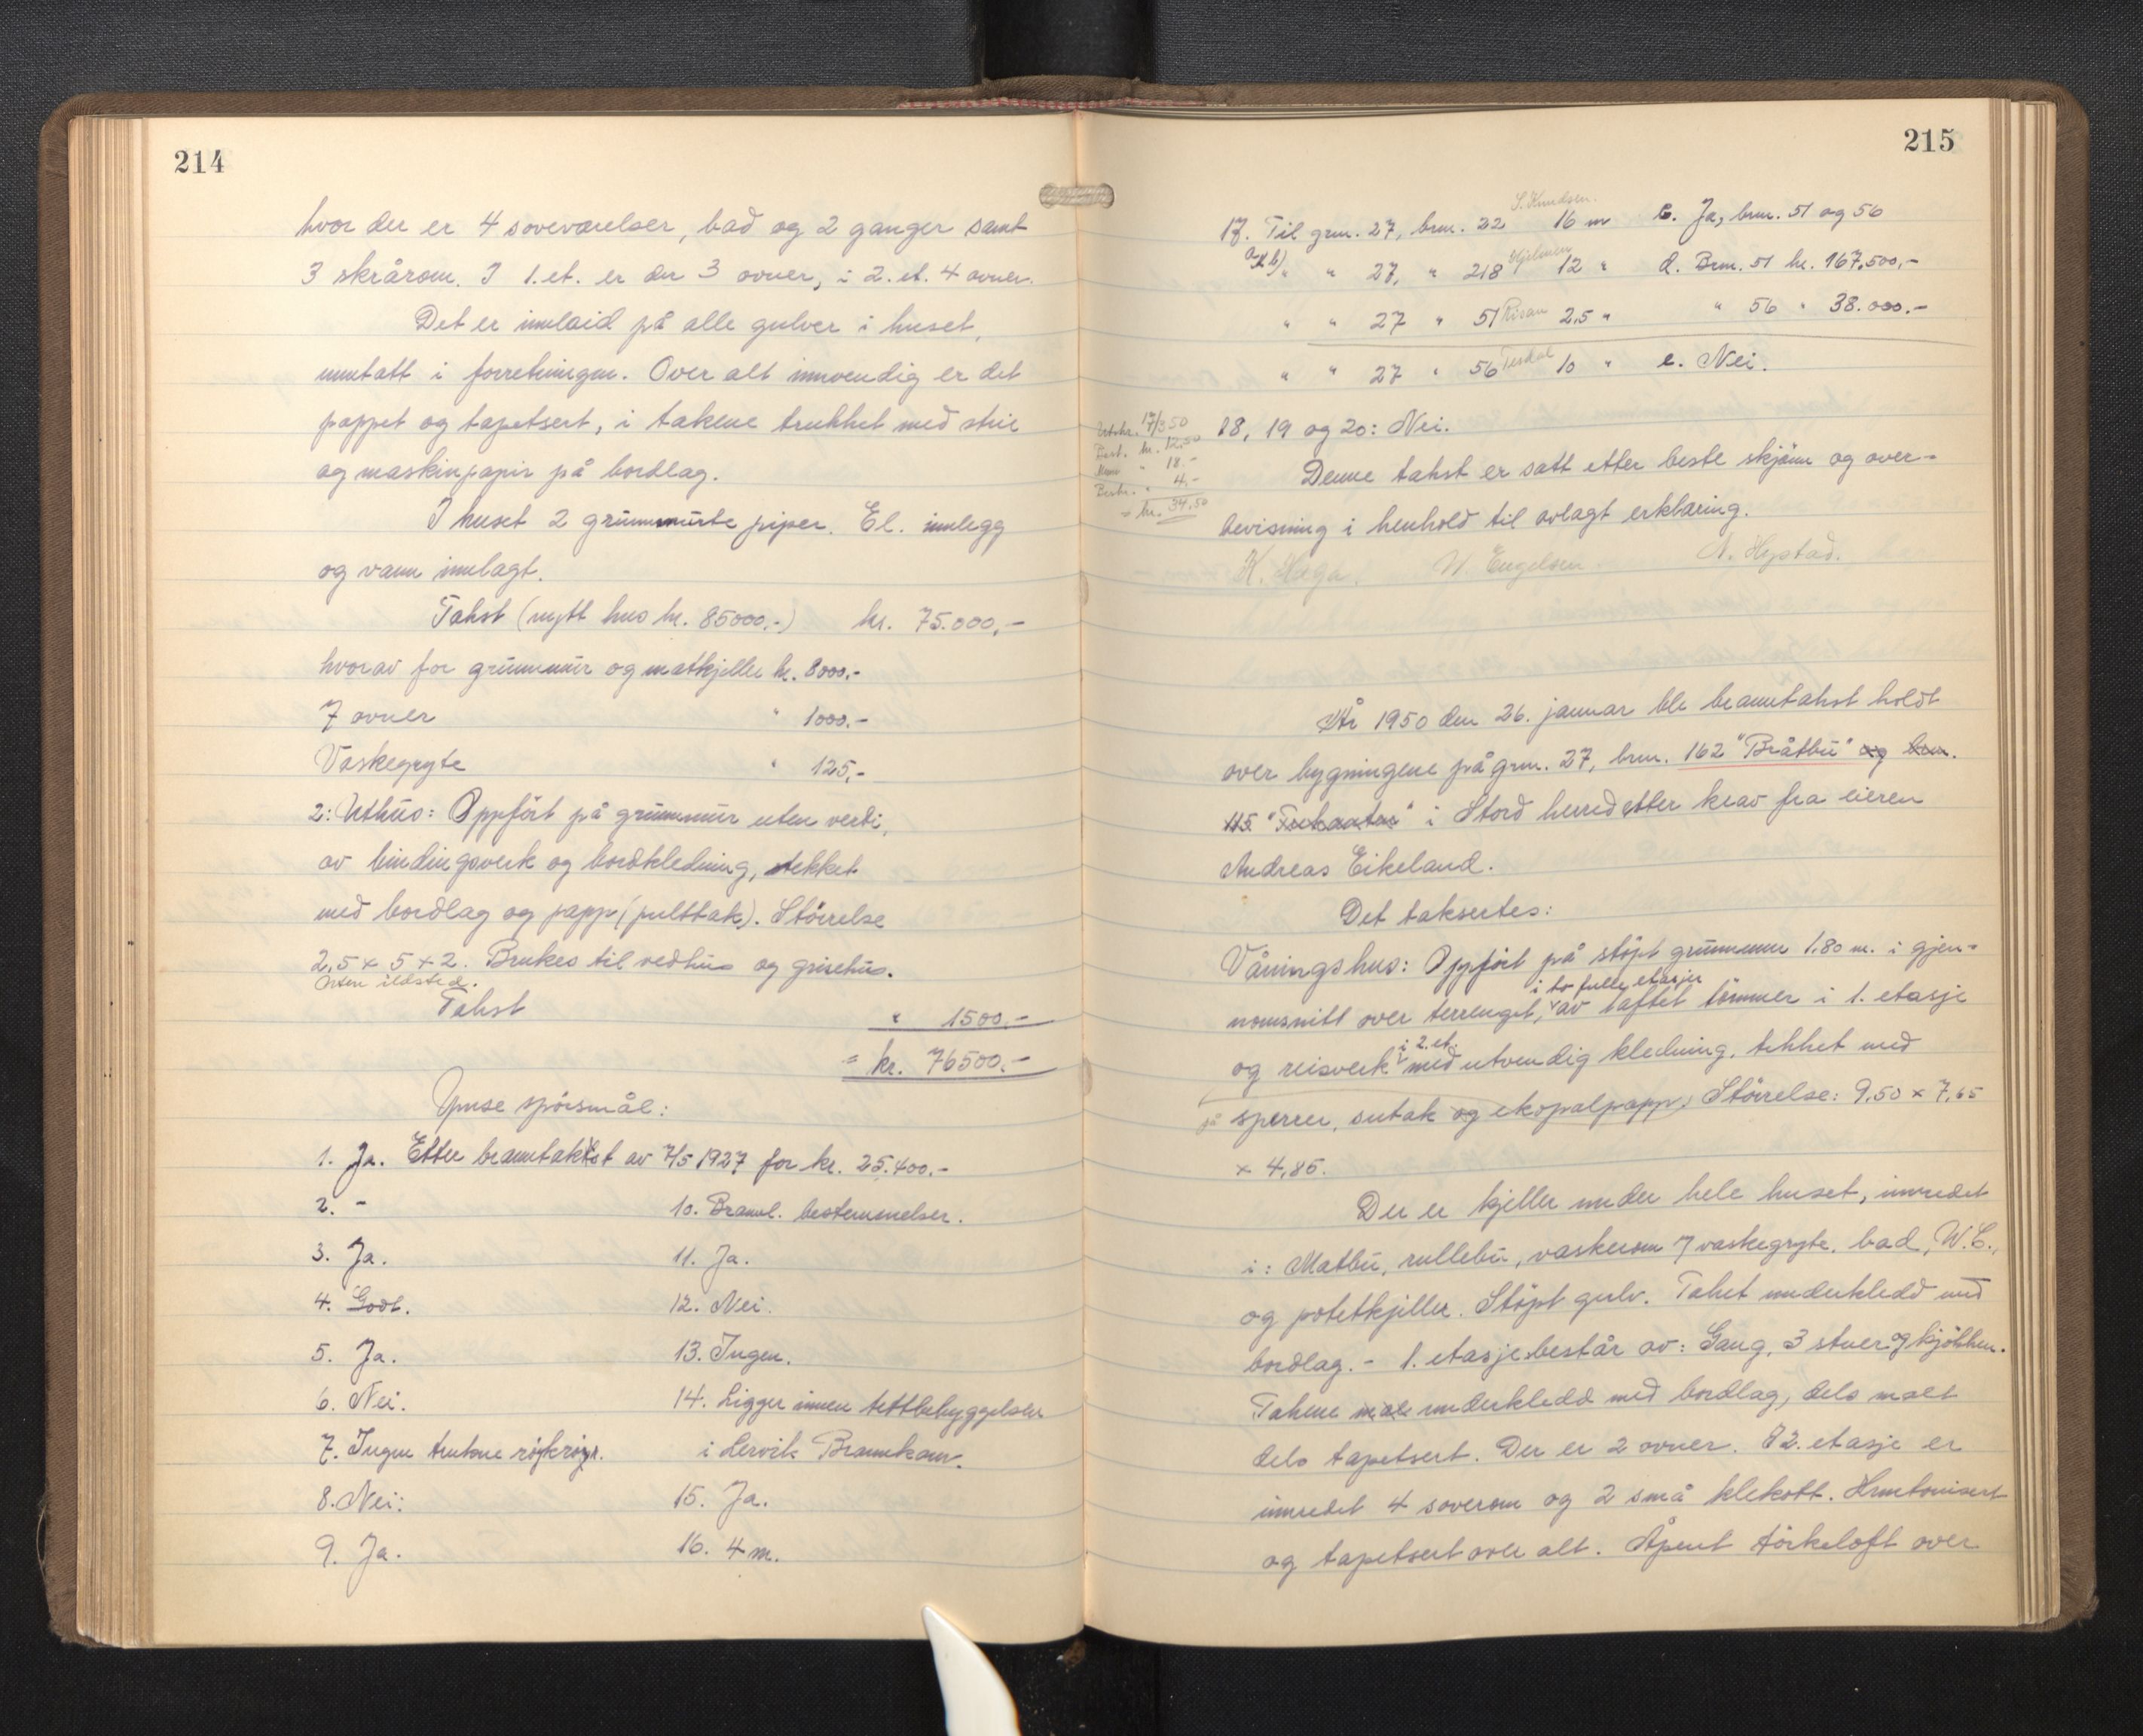 214
hvor der er 4 soveværelser, bad og 2 ganger samt
3 skrårom. I 1. et. er der 3 ovner, i 2. et. 4 ovner.
Det er innlaid på alle gulver i huset,
unntatt i forretningen. Over alt innvendig er det
pappet og tapetsert, i takene trukket med strie
og maskinpapir på bordlag.
I huset 2 grunnmurte piper. El. innlegg
og vann innlagt.
Takst (nytt hus kr. 85000.-) kr. 75.000,-
hvorav for grunnmur og matkjeller kr. 8000.-
7 ovner " 1000.-
Vaskegryte " 125,-
2: Uthus: Oppført på grunnmur uten verdi,
av bindingsverk og bordkledning, tekket
med bordlag og papp (pulttak). Størrelse
2,5 x 5 x 2. Brukes til vedhus og grisehus.
Uten ildsted.
Takst " 1500.-
= kr. 76500.-
Ymse spørsmål:
1. Ja. Etter branntakst av 7/5 1927 for kr. 25.400.-
2. -
3. Ja.
4. Godt.
5. Ja.
6. Nei.
7. Ingen trukne røykrør.
8. Nei:
9. Ja.
10. Brannl. bestemmelser.
11. Ja.
12. Nei.
13. Ingen.
14. Ligger innen tettbebyggelsen
i Lervik Brannkom.
15. Ja.
16. 4 m.
215
17. Til gnr. 27, bnr. 22 S. Knudsen. 16 m c. Ja, bnr. 51 og 56
a & b) " " 27, " 218 Hjelmen 12 " d. Bnr. 51 kr. 167,500,-
" " 27 " 51 Risan 2,5 " " 56 " 38.000.-
" " 27 " 56 Tesdal 10 " e. Nei.
18, 19 og 20: Nei.
Utskr. 17/3 50
kr. 12,50
" 18.-
" 4,-
= kr. 34,50
Denne takst er satt etter beste skjønn og over-
bevisning i henhold til avlagt erklæring.
K. Haga. N. Engelsen. A. Hystad.
År 1950 den 26. januar ble branntakst holdt
over bygningene på gnr. 27, bnr. 162 "Bråtbu" og bnr.
115 "" i Stord herred etter krav fra eieren
Andreas Eikeland.
Det taksertes:
Våningshus: Oppført på støpt grunnmur 1.80 m. i gjen-
nomsnitt over terrenget, i to fulle etasjer av laftet tømmer i 1. etasje
og reisverk i 2. et. med utvendig kledning, tekket med
på sperrer, sutak og ekopalpapp. Størrelse: 9,50 x 7,65
x 4,85.
Der er kjeller under hele huset, innredet
i: Matbu, rullebu, vaskerom m/ vaskegryte, bad, W.C.,
og potetkjeller. Støpt gulv. Taket underkledd med
bordlag. - 1. etasje består av: Gang, 3 stuer og kjøkken.
Takene underkledd med bordlag, dels malt
dels tapetsert. Der er 2 ovner. I 2. etasje er
innredet 4 soverom og 2 små klekott. Huntonisert
og tapetsert over alt. Åpent tørkeloft over